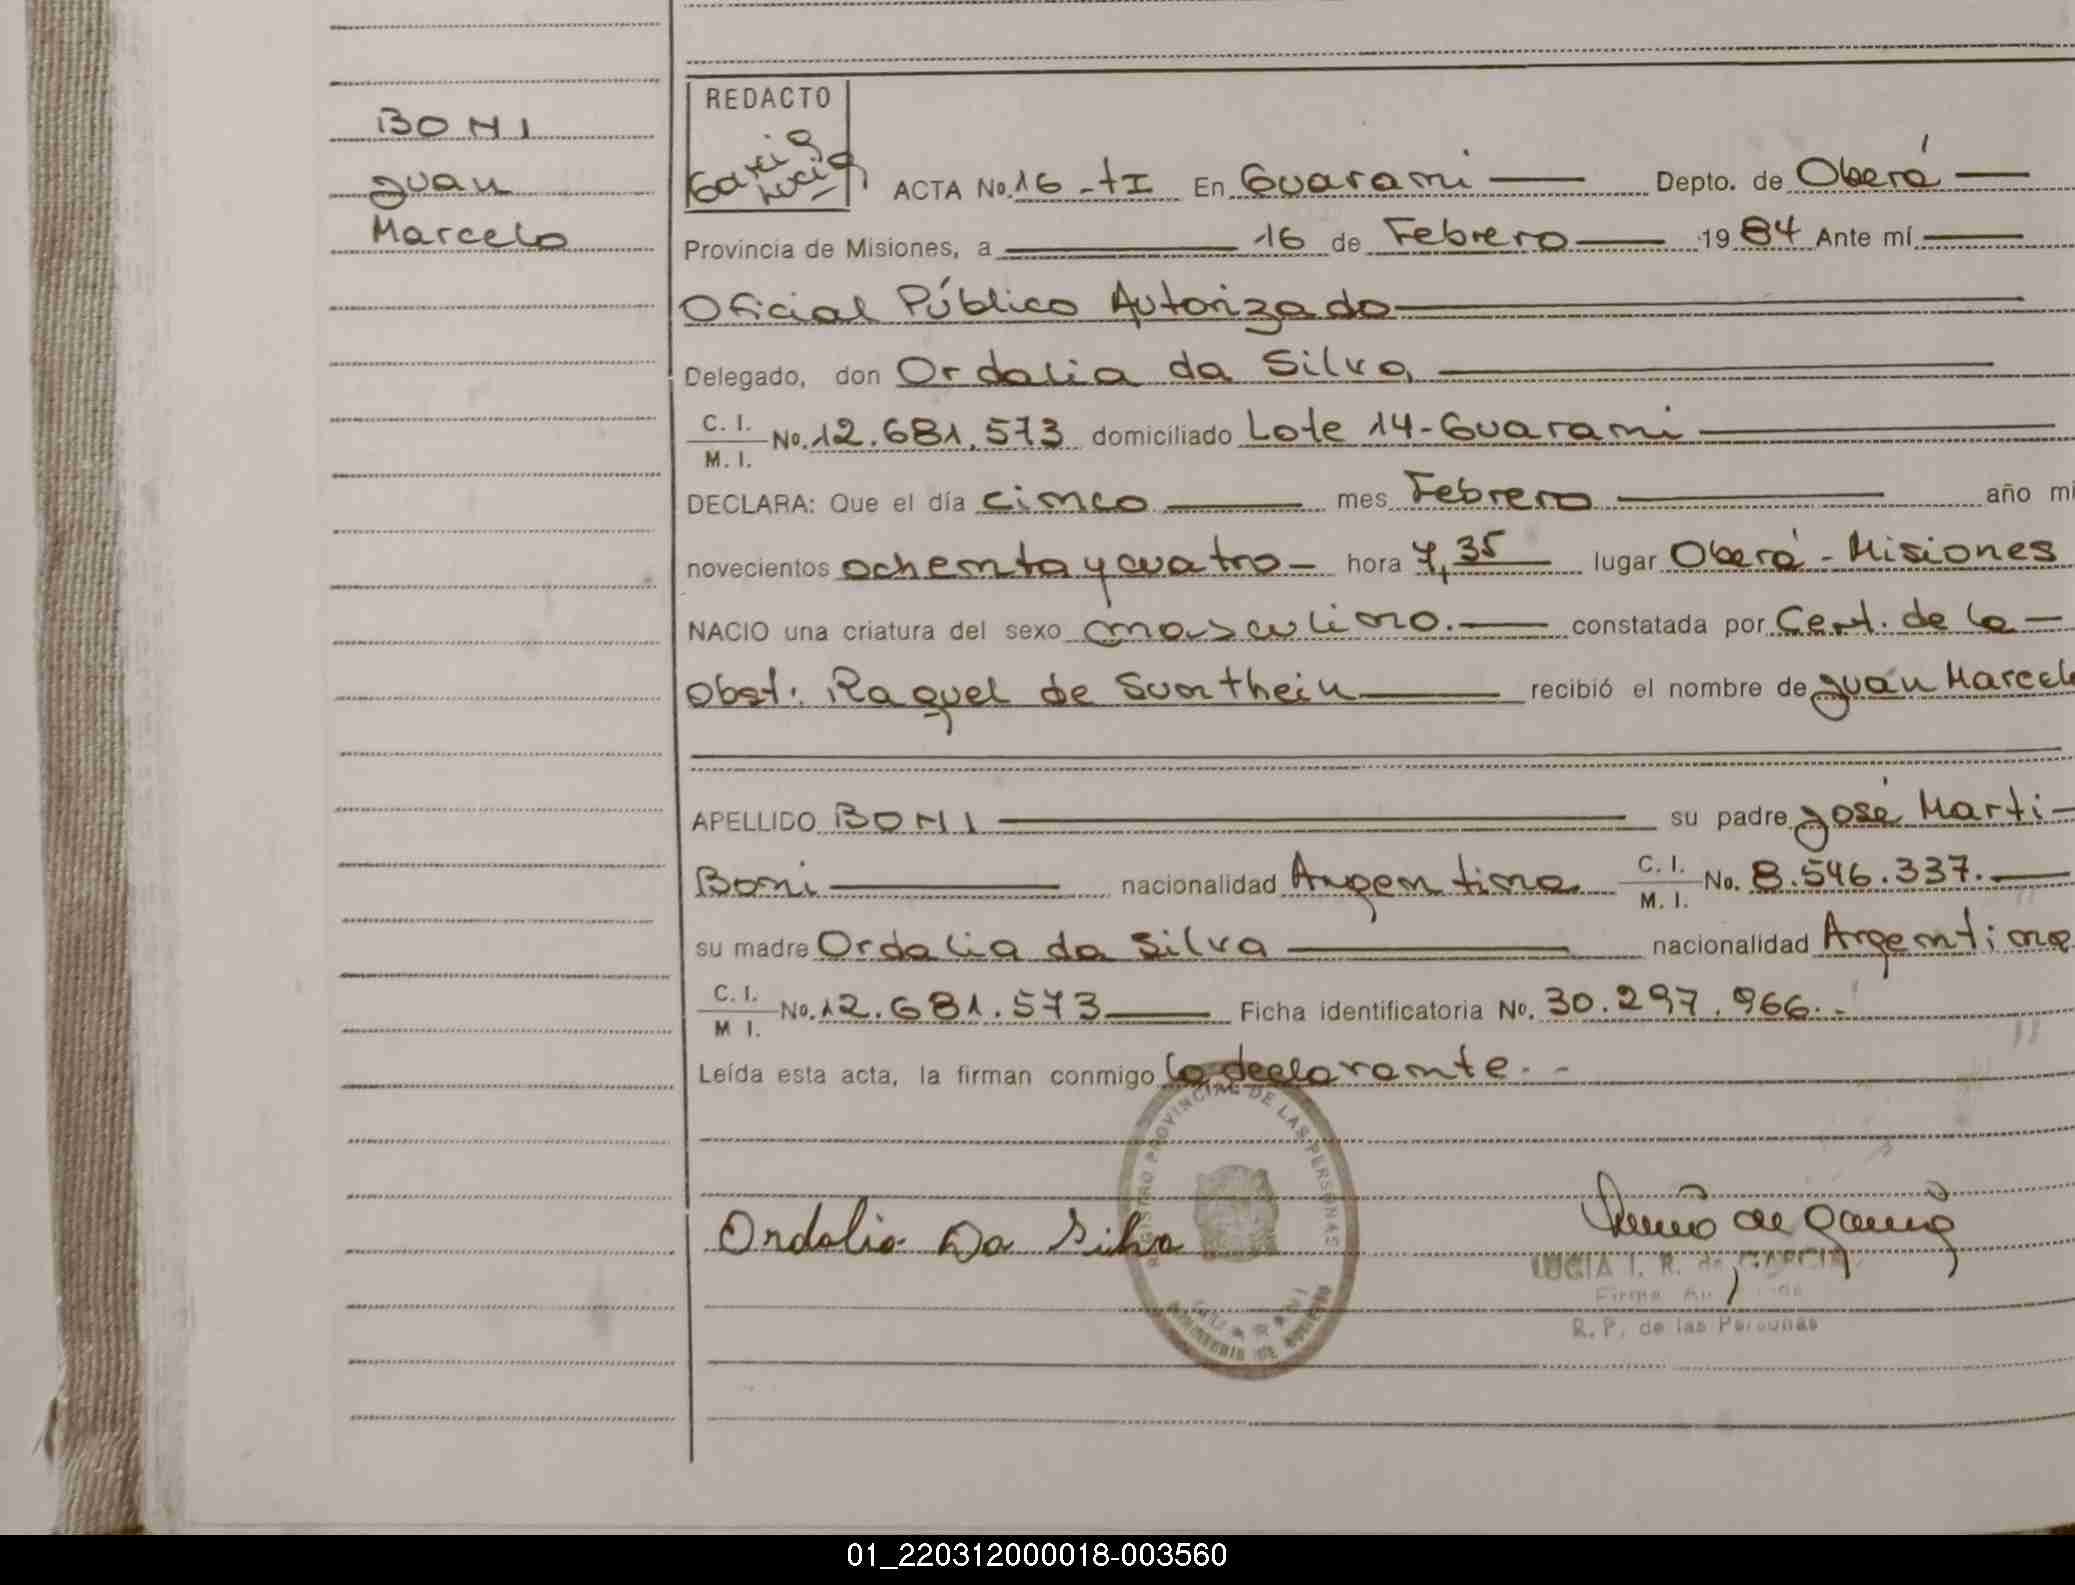 BONI
Juan
Marcelo
REDACTO
Garcia
Lucia
ACTA No. 16 - tI En Guarani Depto. de Oberá
Provincia de Misiones, a 16 de Febrero 19 84 Ante mí
Oficial Público Autorizado
Delegado, don Ordalia da Silva
C. I.
M. I. No. 12.681.573 domiciliado Lote 14 - Guarani
DECLARA: Que el día cinco mes Febrero año mi
novecientos ochenta y cuatro hora 7,35 lugar Oberá - Misiones
NACIO una criatura del sexo masculino. constatada por Cert. de la
Obst: Raquel de Sunthein recibió el nombre de Juan Marcelo
APELLIDO BONI su padre José Marti-
Boni nacionalidad Argentina C. I. M. I. No. 8.546.337.
su madre Ordalia da Silva nacionalidad Argentina
C. I. M I. No. 12.681.573 Ficha identificatoria No. 30.297.966.-
Leída esta acta, la firman conmigo la declarante. -
REGISTRO PROVINCIAL DE LAS PERSONAS
Ordalia Da Silva
LUCIA I. R. de GARCIA
R. P. de las Personas
01_220312000018-003560